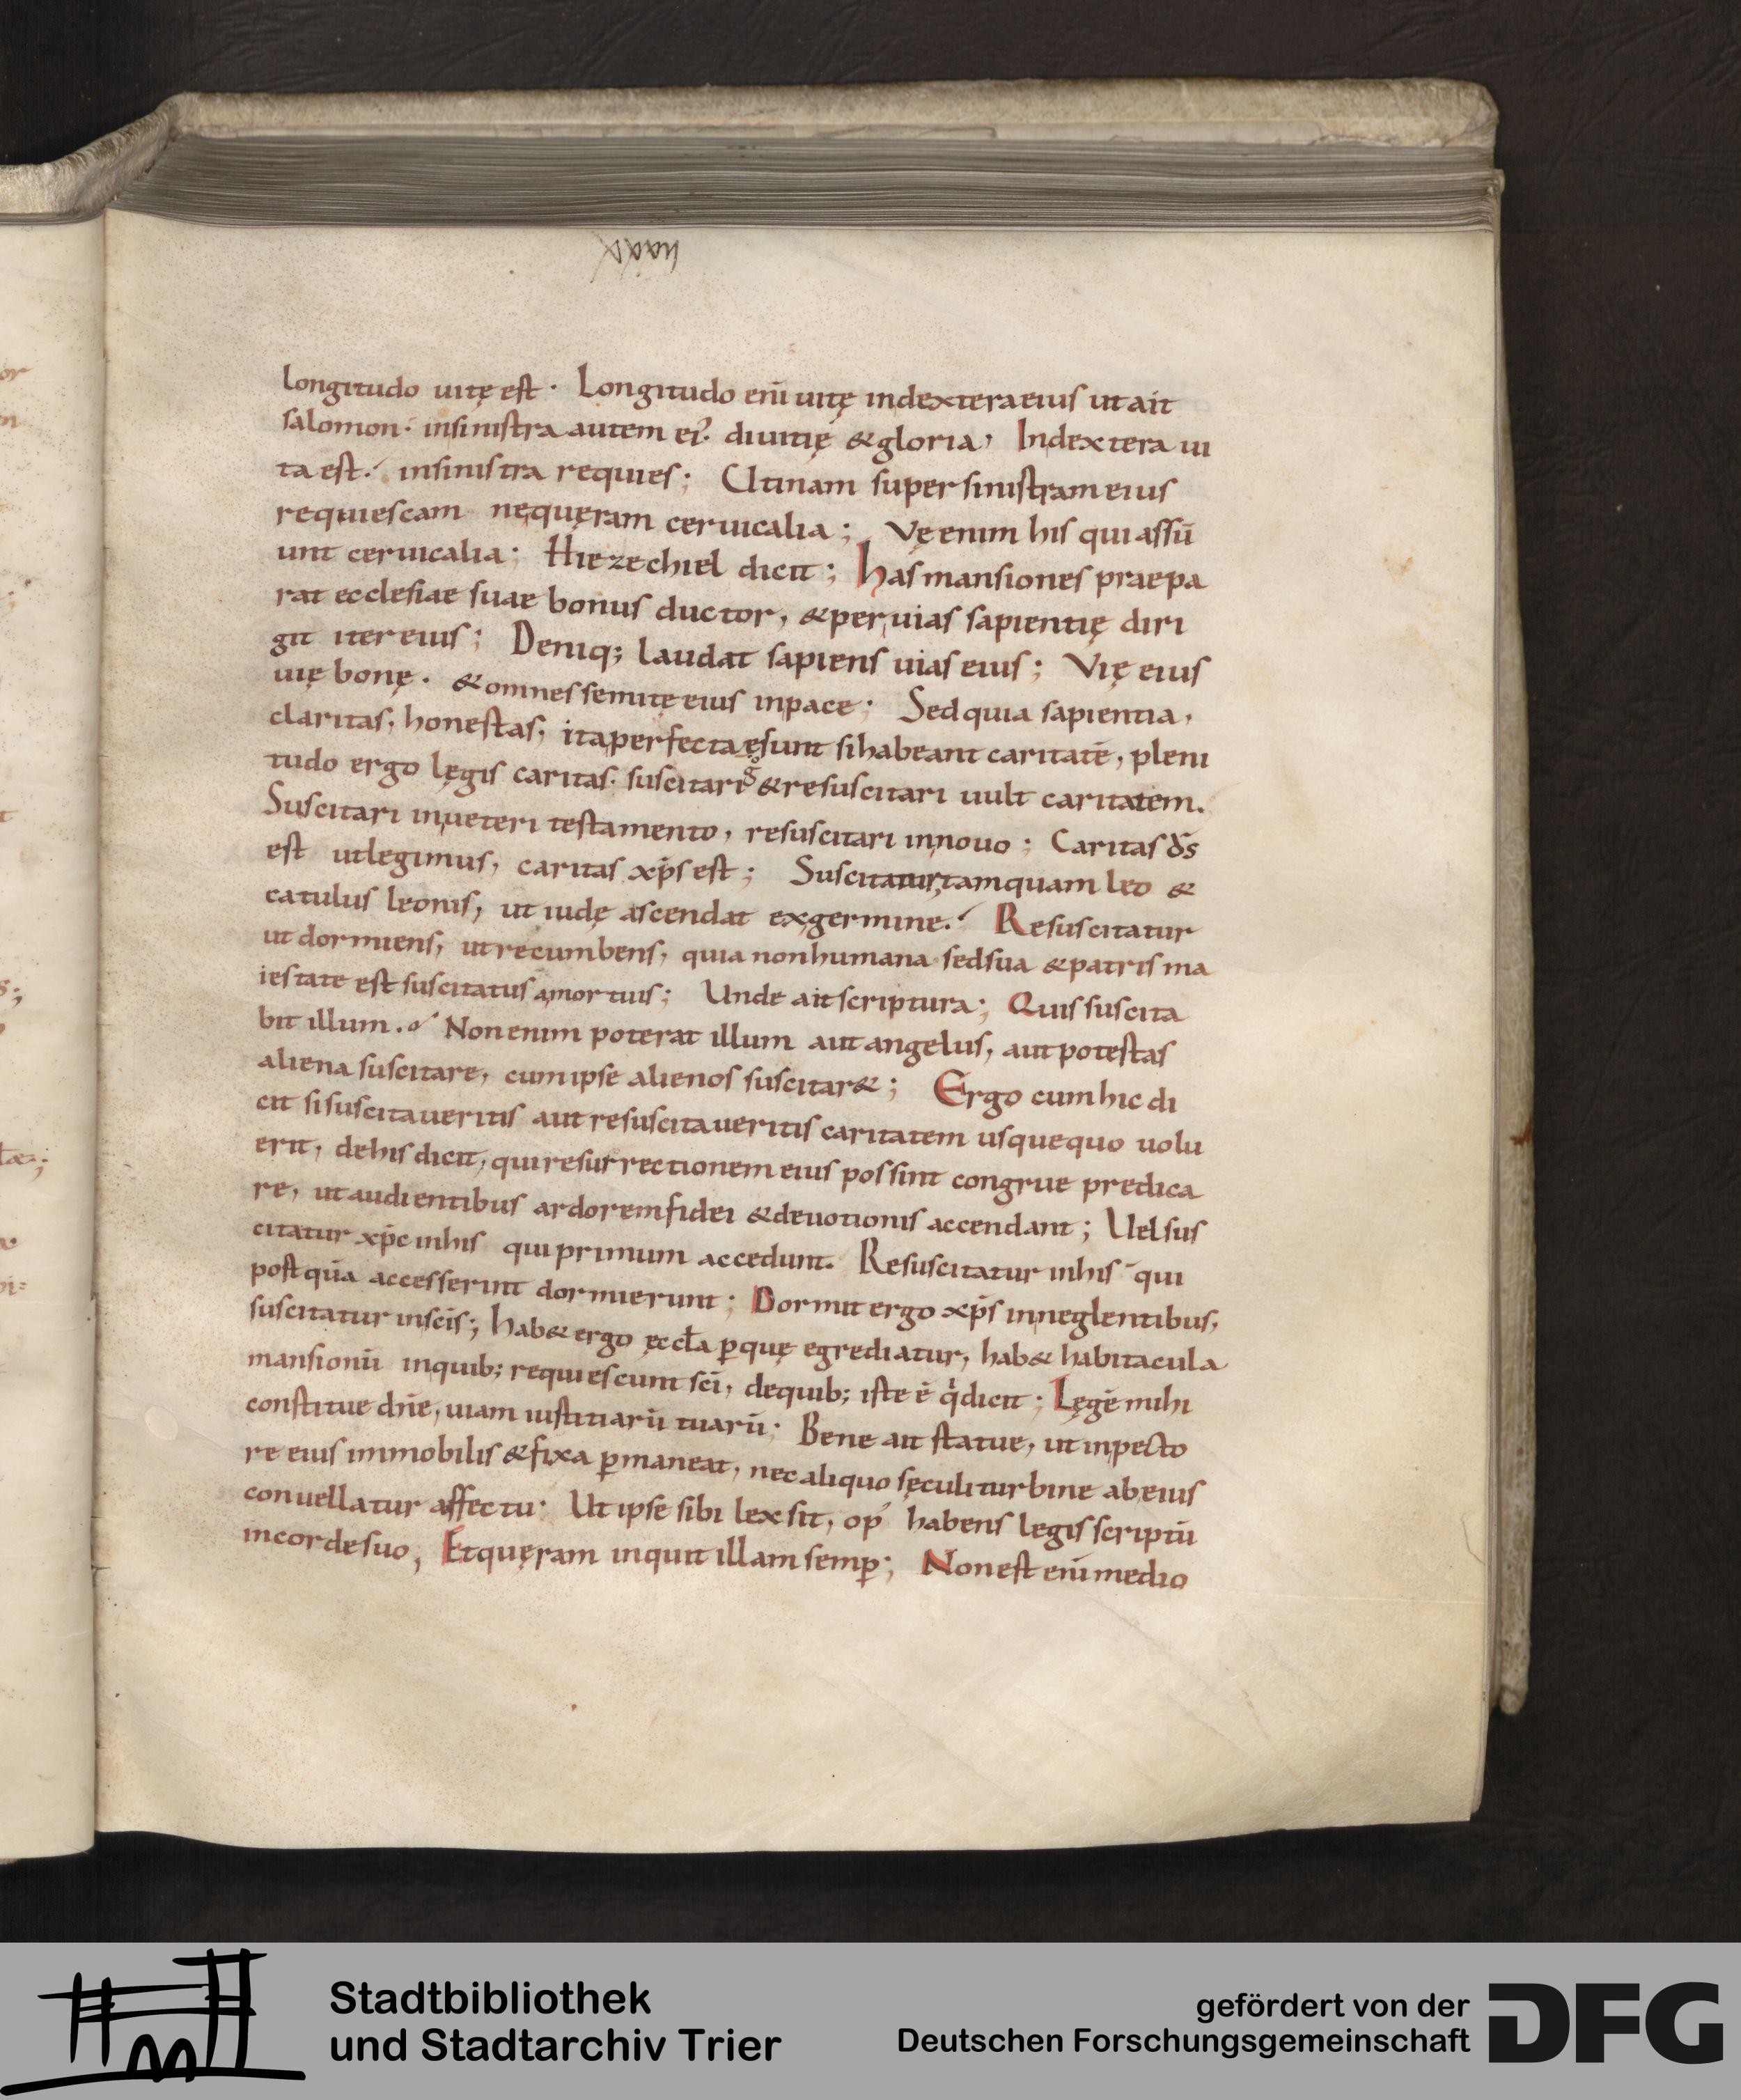 longitudo uitę est· Longitudo eni̅ uitę indextera eius ut ait
salomon· insinistra autem ei᾽· diuitię &gloria, Indextera ui
ta est· insinistra requies; Utinam super sinistram eius
requiescam nequęram ceruicalia; Vę enim his qui assū
unt ceruicalia; Hiezechiel dicit; Has mansiones praepa
rat ecclesiae suae bonus ductor, &per uias sapientię diri
git iter eius; Deniq; laudat sapiens uias eius; Vię eius
uię bonę· &omnes semitę eius inpace; Sed quia sapientia,
claritas, honestas, ita perfecta ęsunt si habeant caritatē, pleni
tudo ergo lęgis caritas· suscitari &resuscitari uult caritatem.
Suscitari inueteri testamento, resuscitari innouo; Caritas d̄s
est utlegimus, caritas xp̄s est; Suscitatur tamquam leo &
catulus leonis, ut iudę ascendat exgermine. Resuscitatur
ut dormiens, ut recumbens, quia non humana sed sua &patris ma
iestate est suscitatus amortuis; Unde ait scriptura; Quis suscita
bit illum. Non enim poterat illum aut angelus, aut potestas
aliena suscitare, cum ipse alienos suscitar&; Ergo cum hic di
cit si suscitaueritis aut resuscitaueritis caritatem usquequo uolu
erit, dehis dicit, qui resurrectionem eius possint congrue predica
re, ut audientibus ardorem fidei &deuotionis accendant; Uel sus
citatur xp̄c inhis qui primum accedunt. Resuscitatur inhis qui
postquā accesserint dormierunt; Dormit ergo xp̄s inneglentibus,
suscitatur insc̄is; hab& ergo ęccl̄a ꝑquę egrediatur, hab& habitacula
mansionū inquib; requiescunt sc̄i, dequib; iste ē qͥ dicit; Lęgē mihi
constitue dn̄e, uiam iustitiarū tuarū; Bene ait statue, ut inpecto
re eius immobilis &fixa ꝑmaneat, nec aliquo sęculi turbine ab eius
conuellatur affectu; Ut ipse sibi lex sit, op᾽ habens legis scriptū
incorde suo; Et quęram inquit illam semꝑ; Non est eni̅ medio
Stadtbibliothek
und Stadtarchiv Trier
gefördert von der
Deutschen Forschungsgemeinschaft
DFG